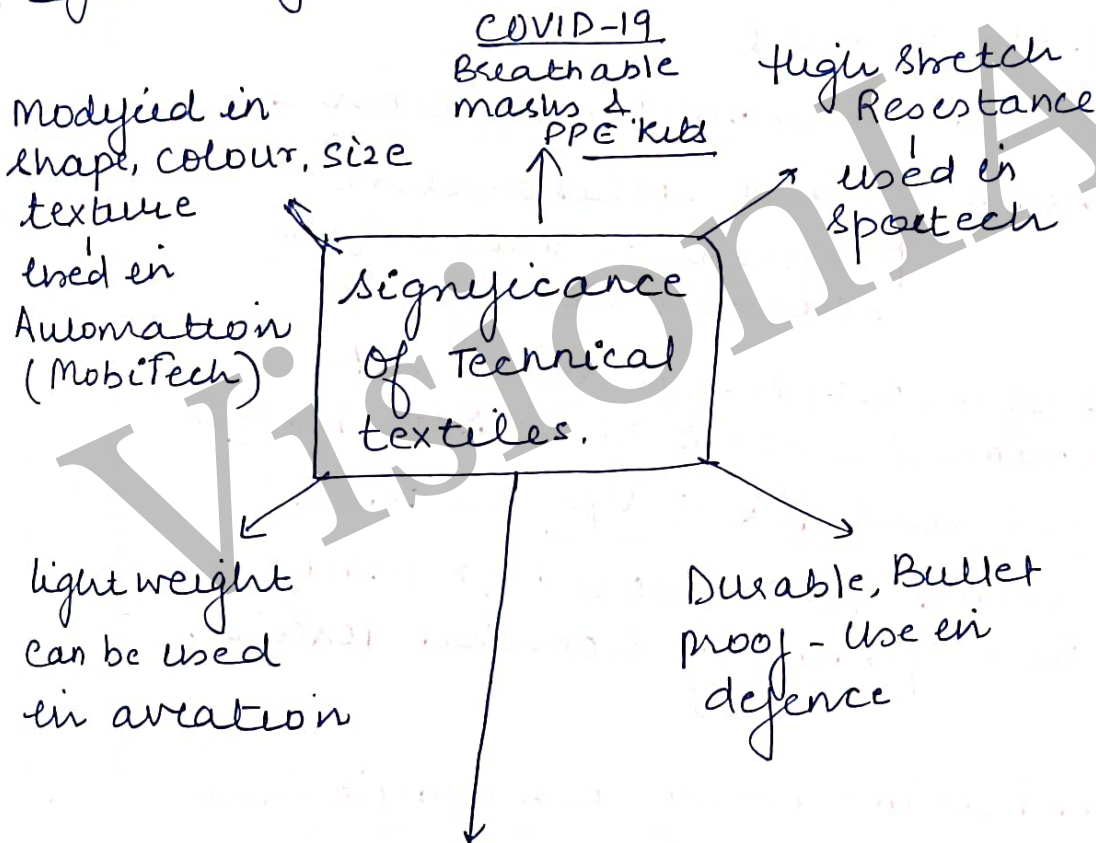 COVID-19
Breathable
masks &
PPE Kits
High Stretch
Resestance
used in
sportech
Modified in
shape, colour, size
texture
used in
Automation
(MobiTech)
significance
of Technical
textiles.
light weight
can be used
in aviation
Durable, Bullet
proof - Use in
defence
VisionIA